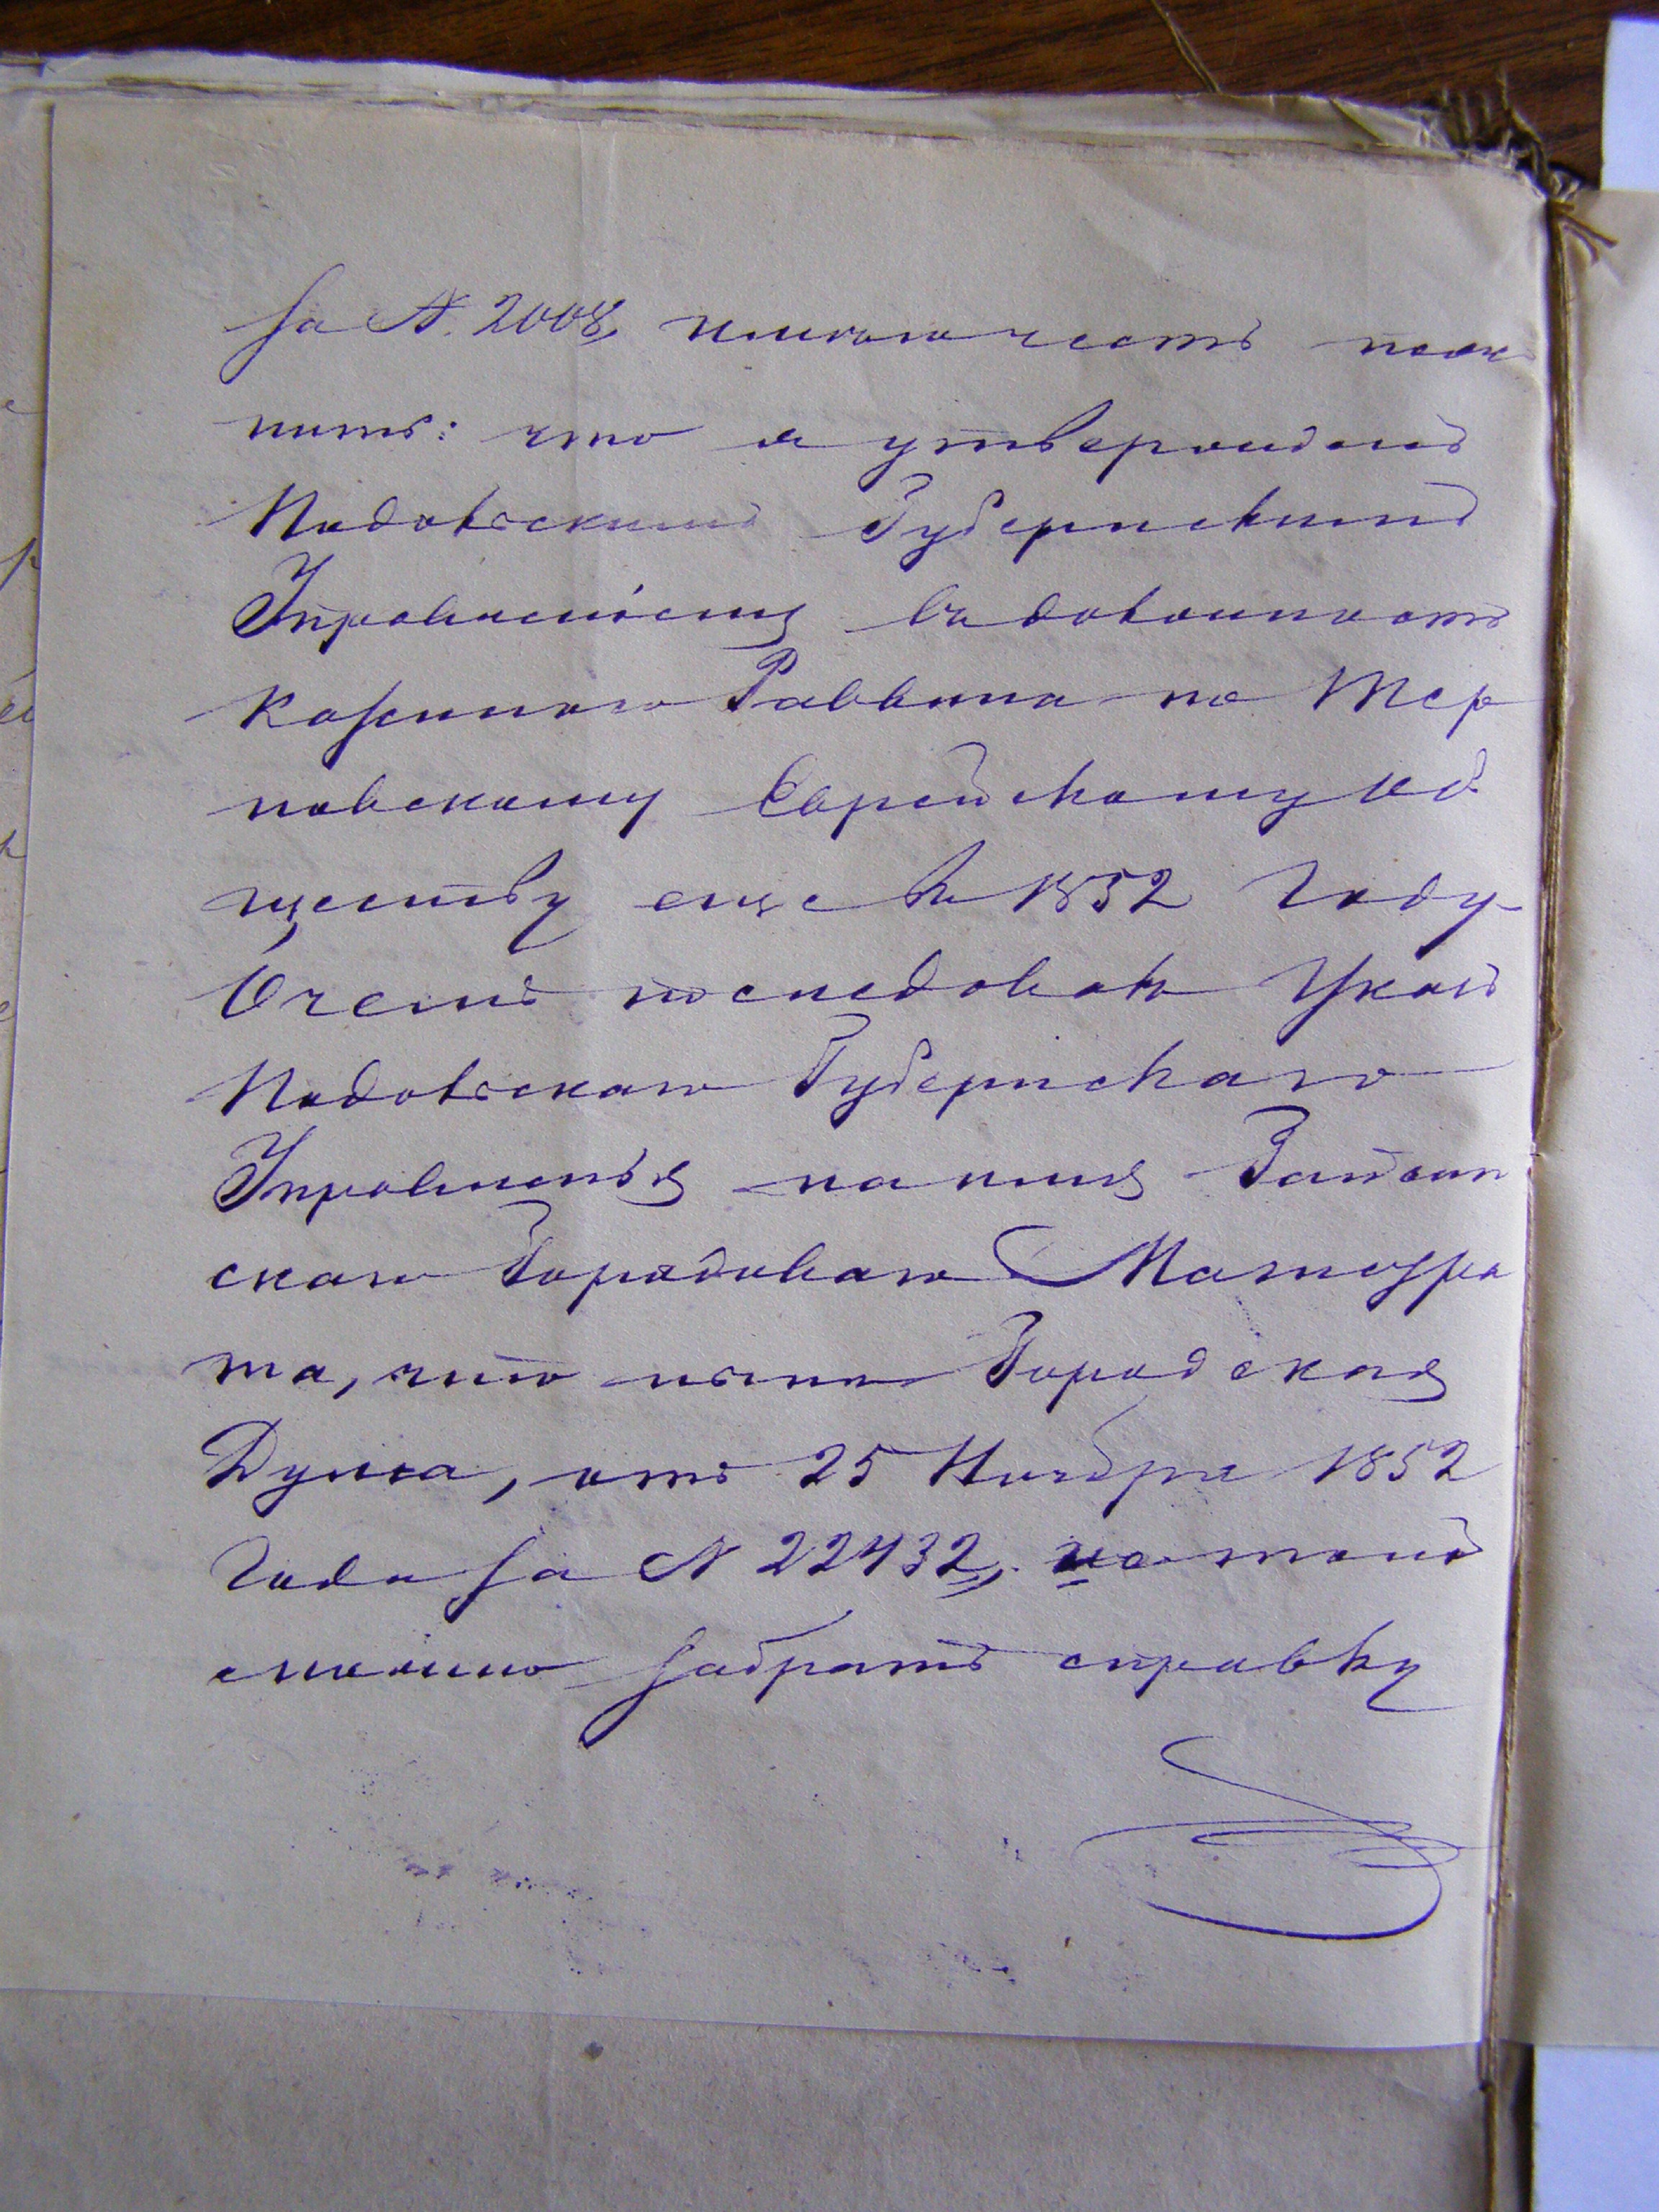 за N. 2008, имею честь пояс
нить: что я утвержденъ
Подольскимъ Губернскимъ
Управленіемъ въ должность
Казеннаго Раввина по Тер
новскому Еврейскому Об
ществу еще въ 1852 году
О чемъ последовалъ Указъ
Подольскаго Губернскаго
Управленія на имя Гайсин
скаго Городоваго Магистра
та, что ныне Городская
Дума, отъ 25 Ноября 1852
Года за N 22432,
забрать справку